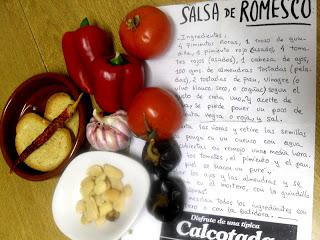 SALSA DE ROMESCO
Ingredientes:
4 pimientos ñoras, 1 trozo de guin-
dilla, 1 pimiento rojo (asado), 4 toma-
tes rojos (asados), 1 cabeza de ajos,
100 gms. de almendras tostadas (pela-
das), 2 tostadas de pan, vinagre (o
vino blanco, seco, o cogñac) según el
gusto de cada uno, y aceite de
se puede poner un poco de
pimienta negra o roja, y sal.
las ñoras y retire las semillas
en un cuenco con agua
remojo una media hora.
los tomates, el pimiento y el pan.
los ajos y las almendras y se
en el mortero, con la guindilla
Todos los ingredientes son
o con la batidora.
Disfrute de una típica
Calçotada